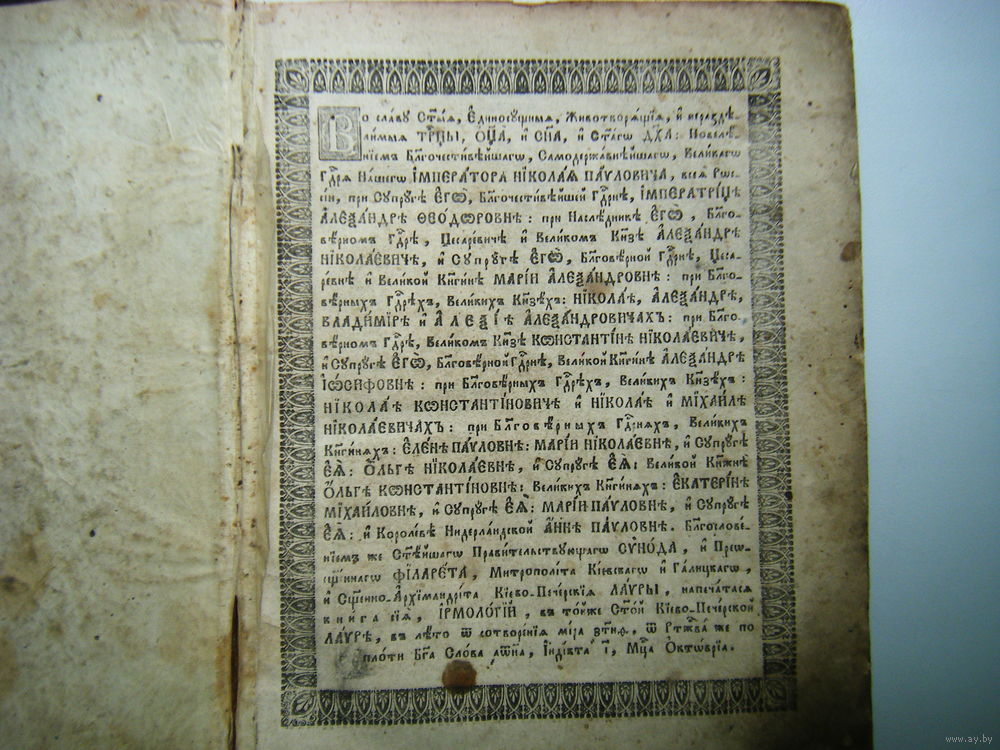 Во славу Ст҃ыѧ, Е҆диносꙋщныѧ, Животворѧ́щїѧ, и҆ неразд҃ѣ-
ли́мыѧ ТРЦ҃Ы, ОЦ҃А̀, и҆ СН҃А, и҆ СТА́ГѠ ДХ҃А: Повелѣ́-
нїемъ Бл҃гочести́вѣйшагѡ, Самодержа́внѣйшагѡ, Вели́кагѡ
Гдⷭ҇рѧ На́шегѡ І҆МПЕРА́ТОРА НЇКОЛА́Ѧ ПА́ѵЛОВИЧА, всеѧ̀ Рѡс-
сі́и, при Сꙋпрꙋ́гѣ Е҆ГѠ̀, Бл҃гочести́вѣйшей Гдⷭ҇рнѣ, І҆МПЕРАТРИ́ЦѢ
А҆ЛЕѮА́НДРѢ ѲЕО́ДѠРОВНѢ: при Наслѣ́дникѣ Е҆ГѠ̀, Бл҃го-
вѣ́рномъ Гдⷭ҇рѣ, Цесаре́вичѣ и҆ Вели́комъ Кн҃зѣ А҆ЛЕѮА́НДРѢ
НЇКОЛА́ЕВИЧѢ, и҆ Сꙋпрꙋ́гѣ Е҆ГѠ̀, Бл҃говѣ́рной Гдⷭ҇рнѣ, Цеса-
ре́внѣ и҆ Вели́кой Кн҃ги́нѣ МАРІ́И А҆ЛЕѮА́НДРОВНѢ: при Бл҃го-
вѣ́рныхъ Гдⷭ҇рѣхъ, Вели́кихъ Кн҃зѣхъ: НЇКОЛА́Ѣ, А҆ЛЕѮА́НДРѢ,
ВЛАДИ́МІРѢ и҆ А҆ЛЕѮІ́Ѣ А҆ЛЕѮА́НДРОВИЧАХЪ: при Бл҃го-
вѣ́рномъ Гдⷭ҇рѣ, Вели́комъ Кн҃зѣ КѠНСТАНТІ́НѢ НЇКОЛА́ЕВИЧѢ,
и҆ Сꙋпрꙋ́гѣ Е҆ГѠ̀, Бл҃говѣ́рной Гдⷭ҇рнѣ, Вели́кой Кн҃ги́нѣ А҆ЛЕѮА́НДРѢ
І҆Ѡ́СИФОВНѢ: при Бл҃говѣ́рныхъ Гдⷭ҇рѣхъ, Вели́кихъ Кн҃зѣхъ:
НЇКОЛА́Ѣ КѠНСТАНТІ́НОВИЧѢ и҆ НЇКОЛА́Ѣ и҆ МЇХАИ́ЛѢ
НЇКОЛА́ЕВИЧАХЪ: при Бл҃говѣ́рныхъ Гдⷭ҇рнѧхъ, Вели́кихъ
Кн҃ги́нѧхъ: Е҆ЛЕ́НѢ ПА́ѵЛОВНѢ: МАРІ́И НЇКОЛА́ЕВНѢ, и҆ Сꙋпрꙋ́гѣ
Е҆Ѧ̀: Ѻ҆́ЛЬГѢ НЇКОЛА́ЕВНѢ, и҆ Сꙋпрꙋ́гѣ Е҆Ѧ̀: Вели́кой Кн҃жнѣ̀
Ѻ҆́ЛЬГѢ КѠНСТАНТІ́НОВНѢ: Вели́кихъ Кн҃ги́нѧхъ: Е҆КАТЕРІ́НѢ
МЇХА́ЙЛОВНѢ, и҆ Сꙋпрꙋ́гѣ Е҆Ѧ̀: МАРІ́И ПА́ѵЛОВНѢ, и҆ Сꙋпрꙋ́гѣ
Е҆Ѧ̀: и҆ Короле́вѣ Нидерла́ндской А҆́ННѢ ПА́ѵЛОВНѢ. Бл҃гослове́-
нїемъ же Ст҃ѣ́йшагѡ Прави́тельствꙋющагѡ СѴНО́ДА, и҆ Прео-
сщ҃е́ннагѡ ФЇЛАРЕ́ТА, Митрополі́та Кі́евскагѡ и҆ Га́лицкагѡ,
и҆ Сщ҃е́нно-А҆рхїмандрі́та Кі́ево-Пече́рскїѧ ЛА́ѴРЫ, напеча́тасѧ
кни́га сїѧ̀, І҆РМОЛО́ГІЙ, въ то́йже Ст҃о́й Кі́ево-Пече́рской
ЛА́ѴРѢ, въ лѣ́то ѿ сотворе́нїѧ мі́ра ҂зтн҃ѳ, ѿ Ржⷭ҇тва̀ же по
пло́ти Бг҃а Сло́ва ҂аѡ҃н҃а, І҆нді́кта і҃, Мцⷭ҇а Ѻ҆ктѡ́врїа.
www.ay.by